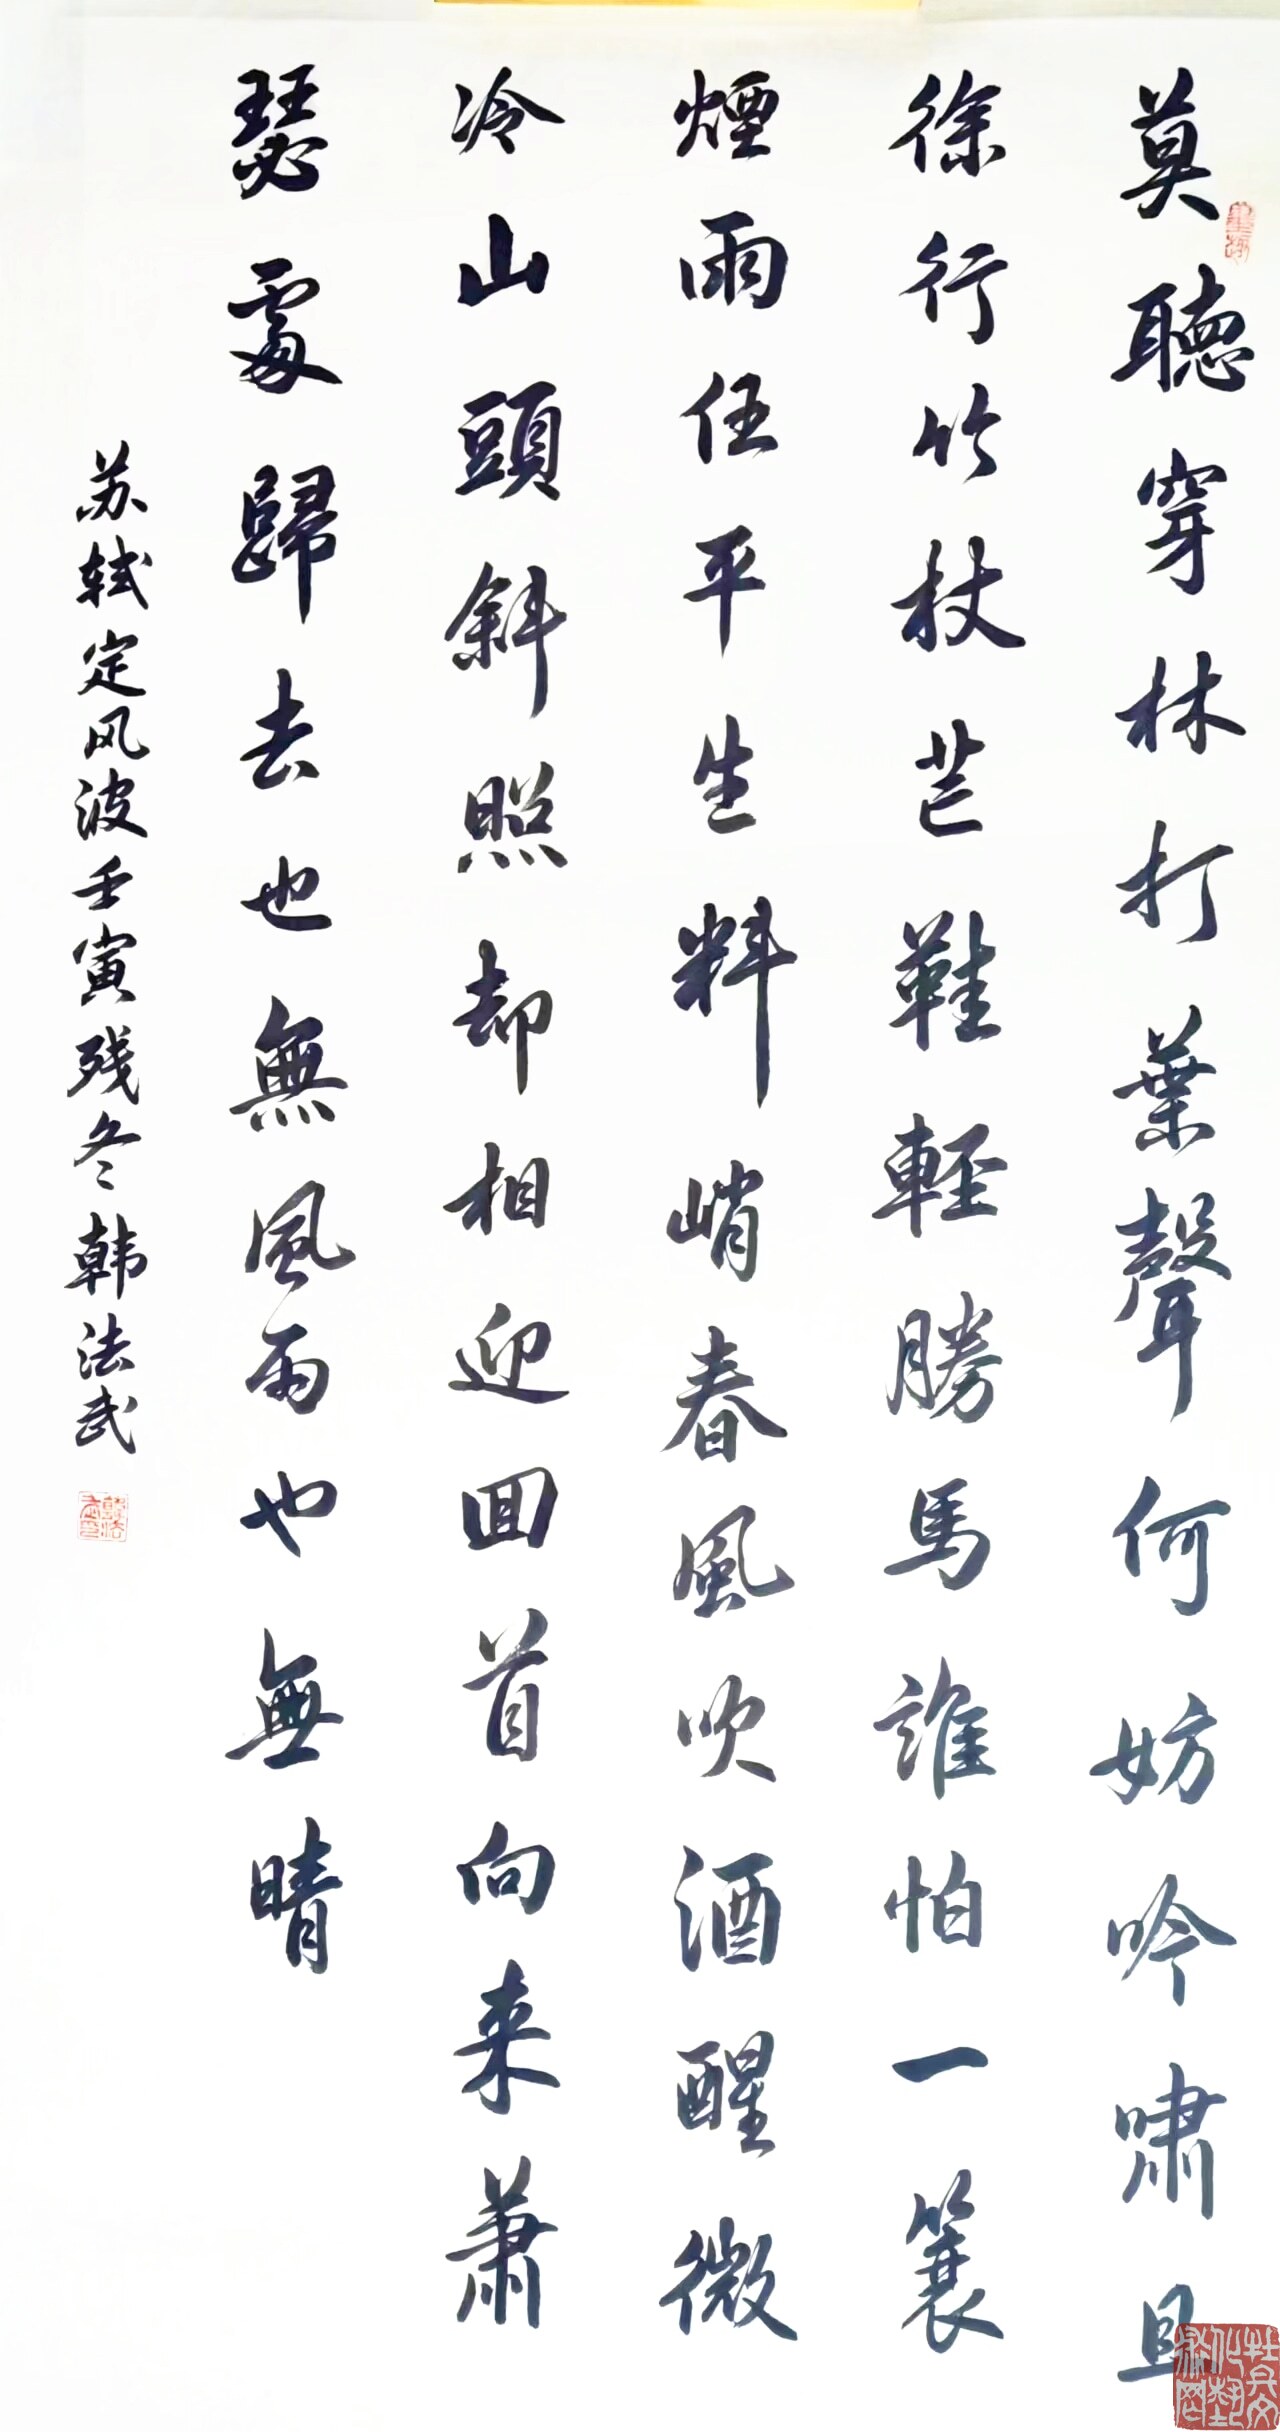 莫聽穿林打葉聲何妨吟嘯且
徐行竹杖芒鞋輕勝馬誰怕一蓑
煙雨任平生料峭春風吹酒醒微
冷山頭斜照却相迎回首向来蕭
瑟處歸去也無風雨也無晴
苏轼定风波壬寅残冬韩法武